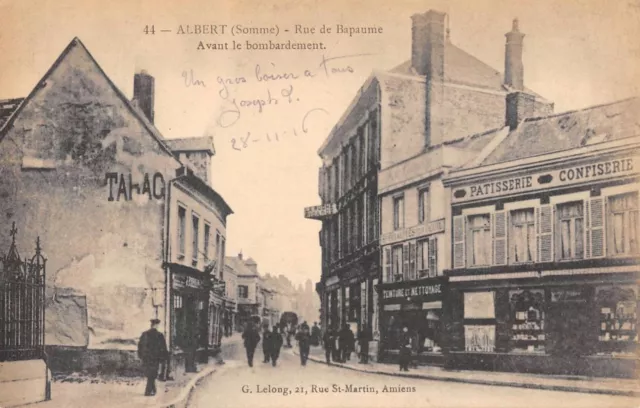 44 — ALBERT (Somme) - Rue de Bapaume
Avant le bombardement.
Un gros baiser à tous
Joseph L.
28-11-16
TABAC
PATISSERIE CONFISERIE
TEINTURE ET NETTOYAGE
G. Lelong, 21, Rue St-Martin, Amiens